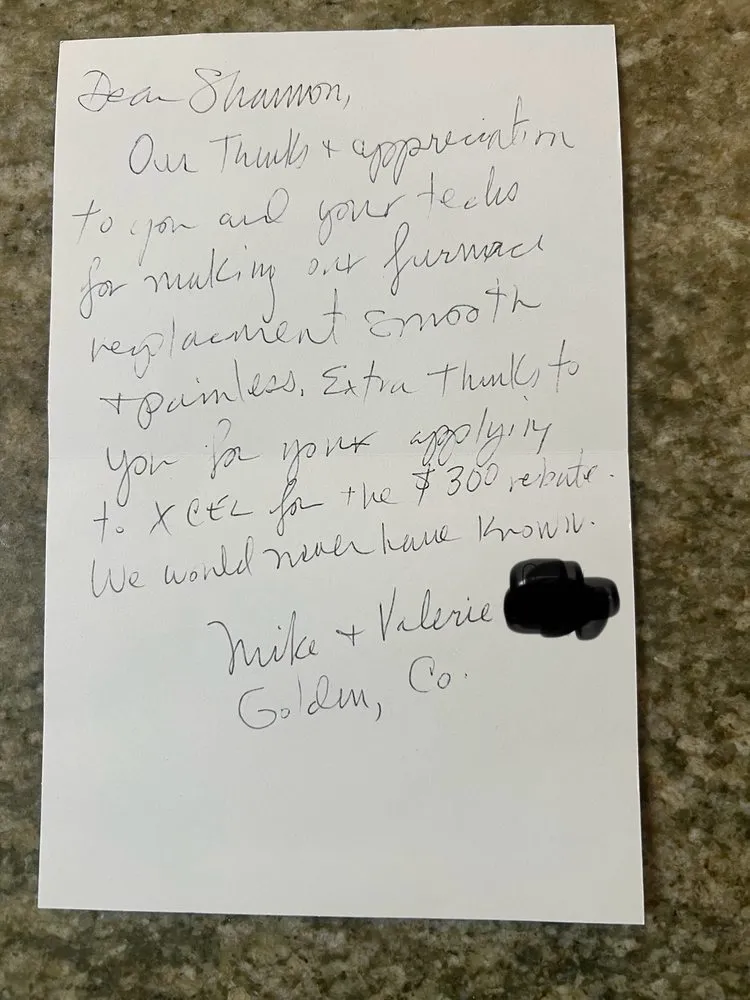 Dear Shannon,
Our Thanks + appreciation
to you and your techs
for making our furnace
replacement smooth
+ painless. Extra Thanks to
you for your applying
to XCEL for the $300 rebate.
We would never have known.
Mike + Valerie
Golden, Co.